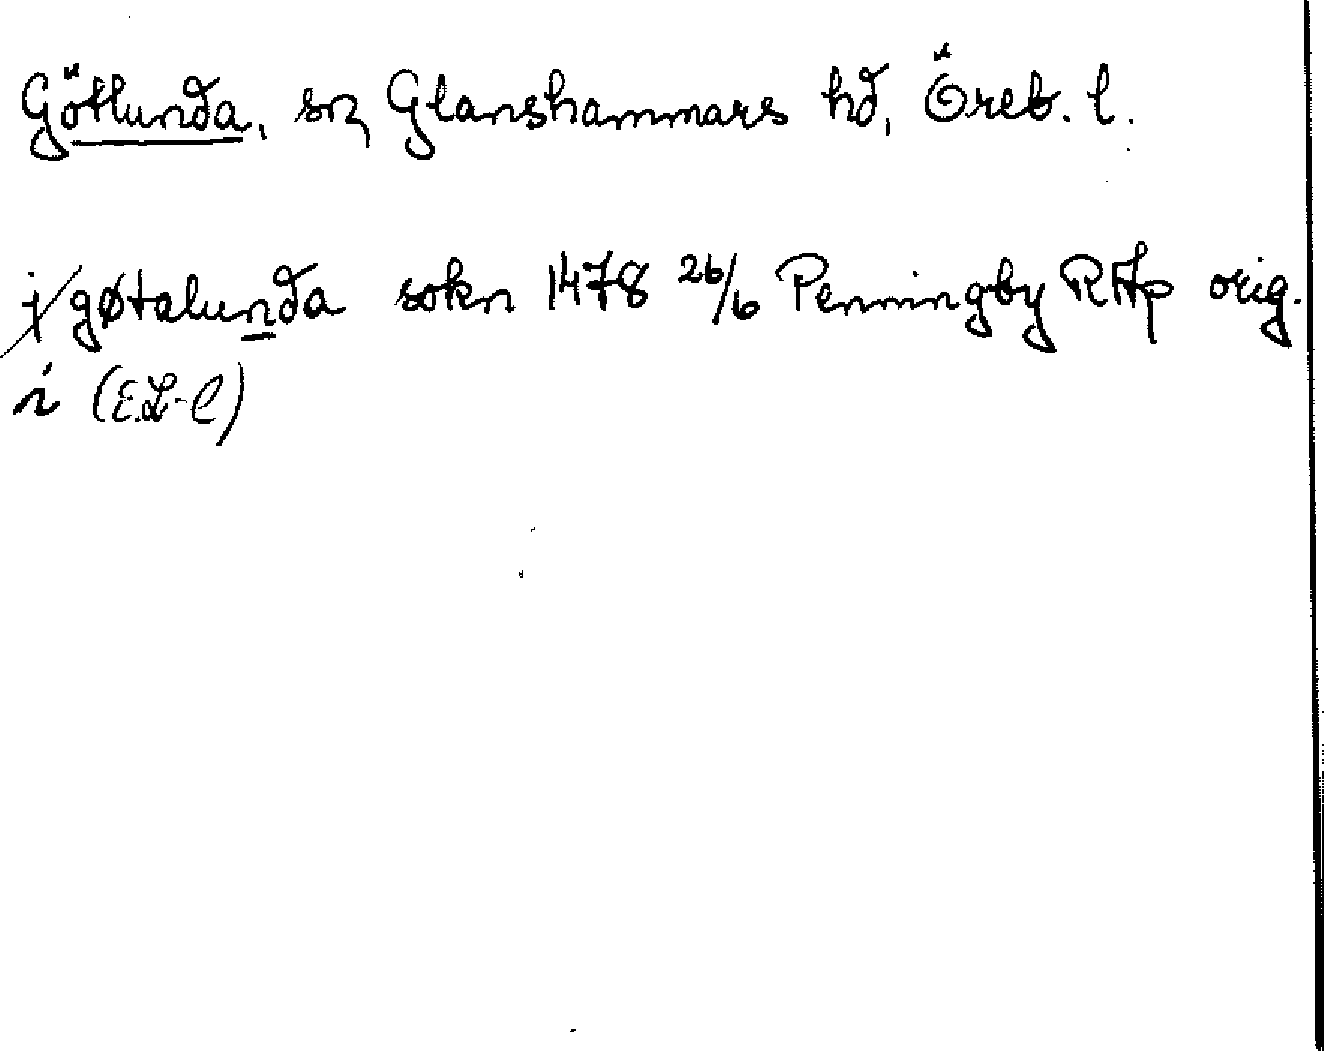 Götlunda, sn, Glanshammars hd, Öreb. l.
j gøtalunda sokn 1478 26/6 Penningby RAp orig.
i (E.L-C)